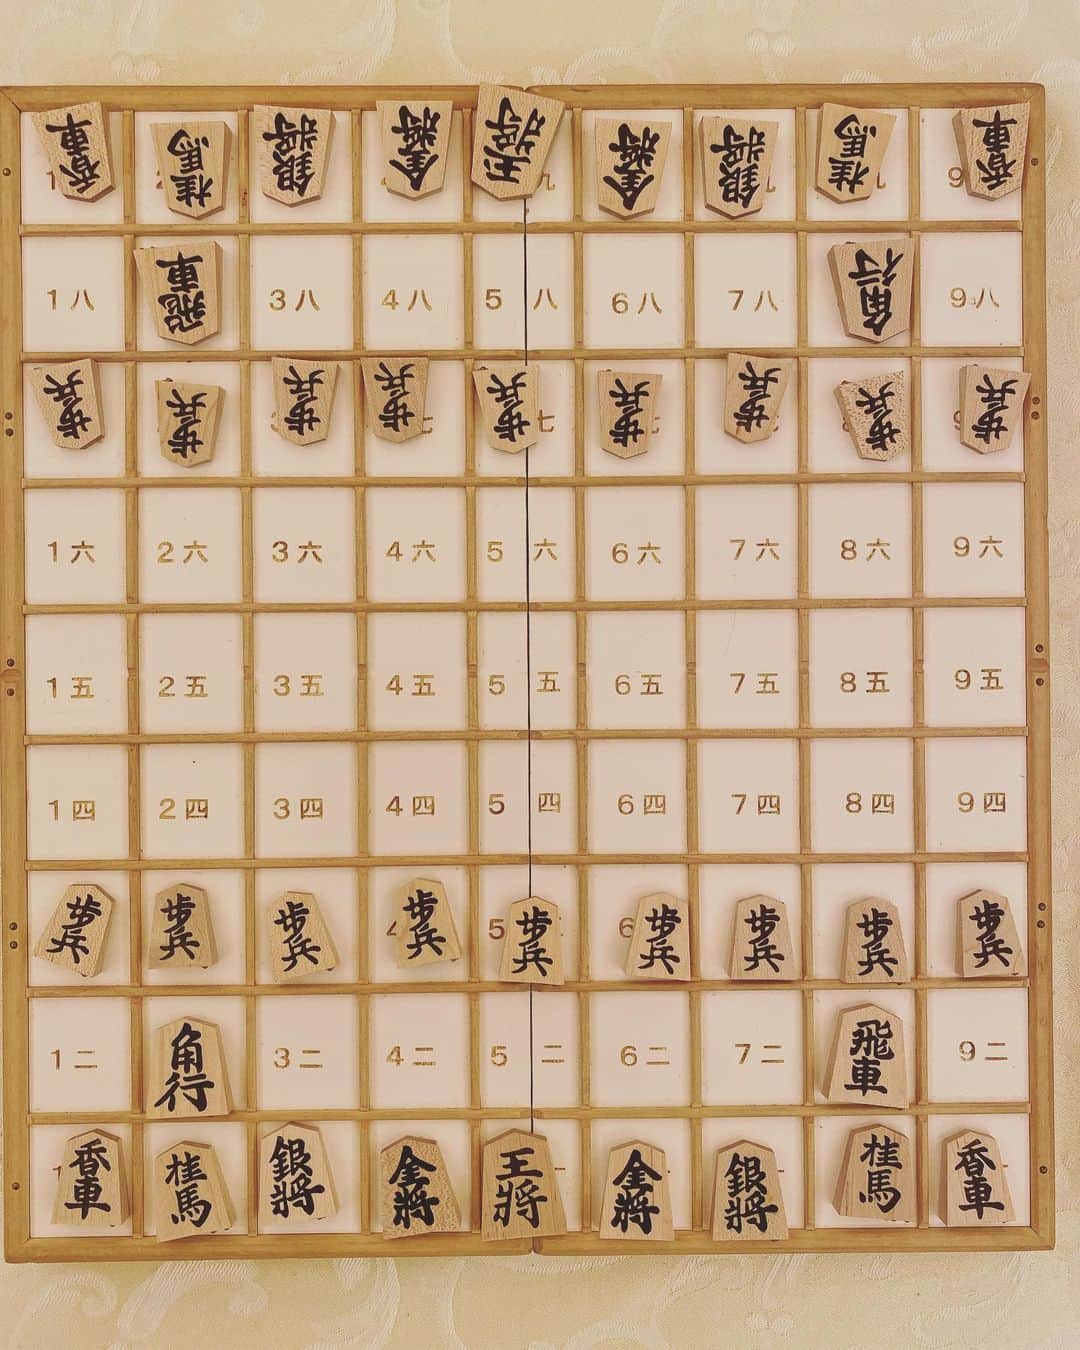 香車 桂馬 銀將 金將 玉将 金將 銀將 桂馬 香車
1八 飛車 3八 4八 5八 6八 7八 角行 9八
歩兵 歩兵 歩兵 歩兵 歩兵 歩兵 歩兵 歩兵 歩兵
1六 2六 3六 4六 5六 6六 7六 8六 9六
1五 2五 3五 4五 5五 6五 7五 8五 9五
1四 2四 3四 4四 5四 6四 7四 8四 9四
歩兵 歩兵 歩兵 歩兵 歩兵 歩兵 歩兵 歩兵 歩兵
1二 角行 3二 4二 5二 6二 7二 飛車 9二
香車 桂馬 銀將 金將 王將 金將 銀將 桂馬 香車